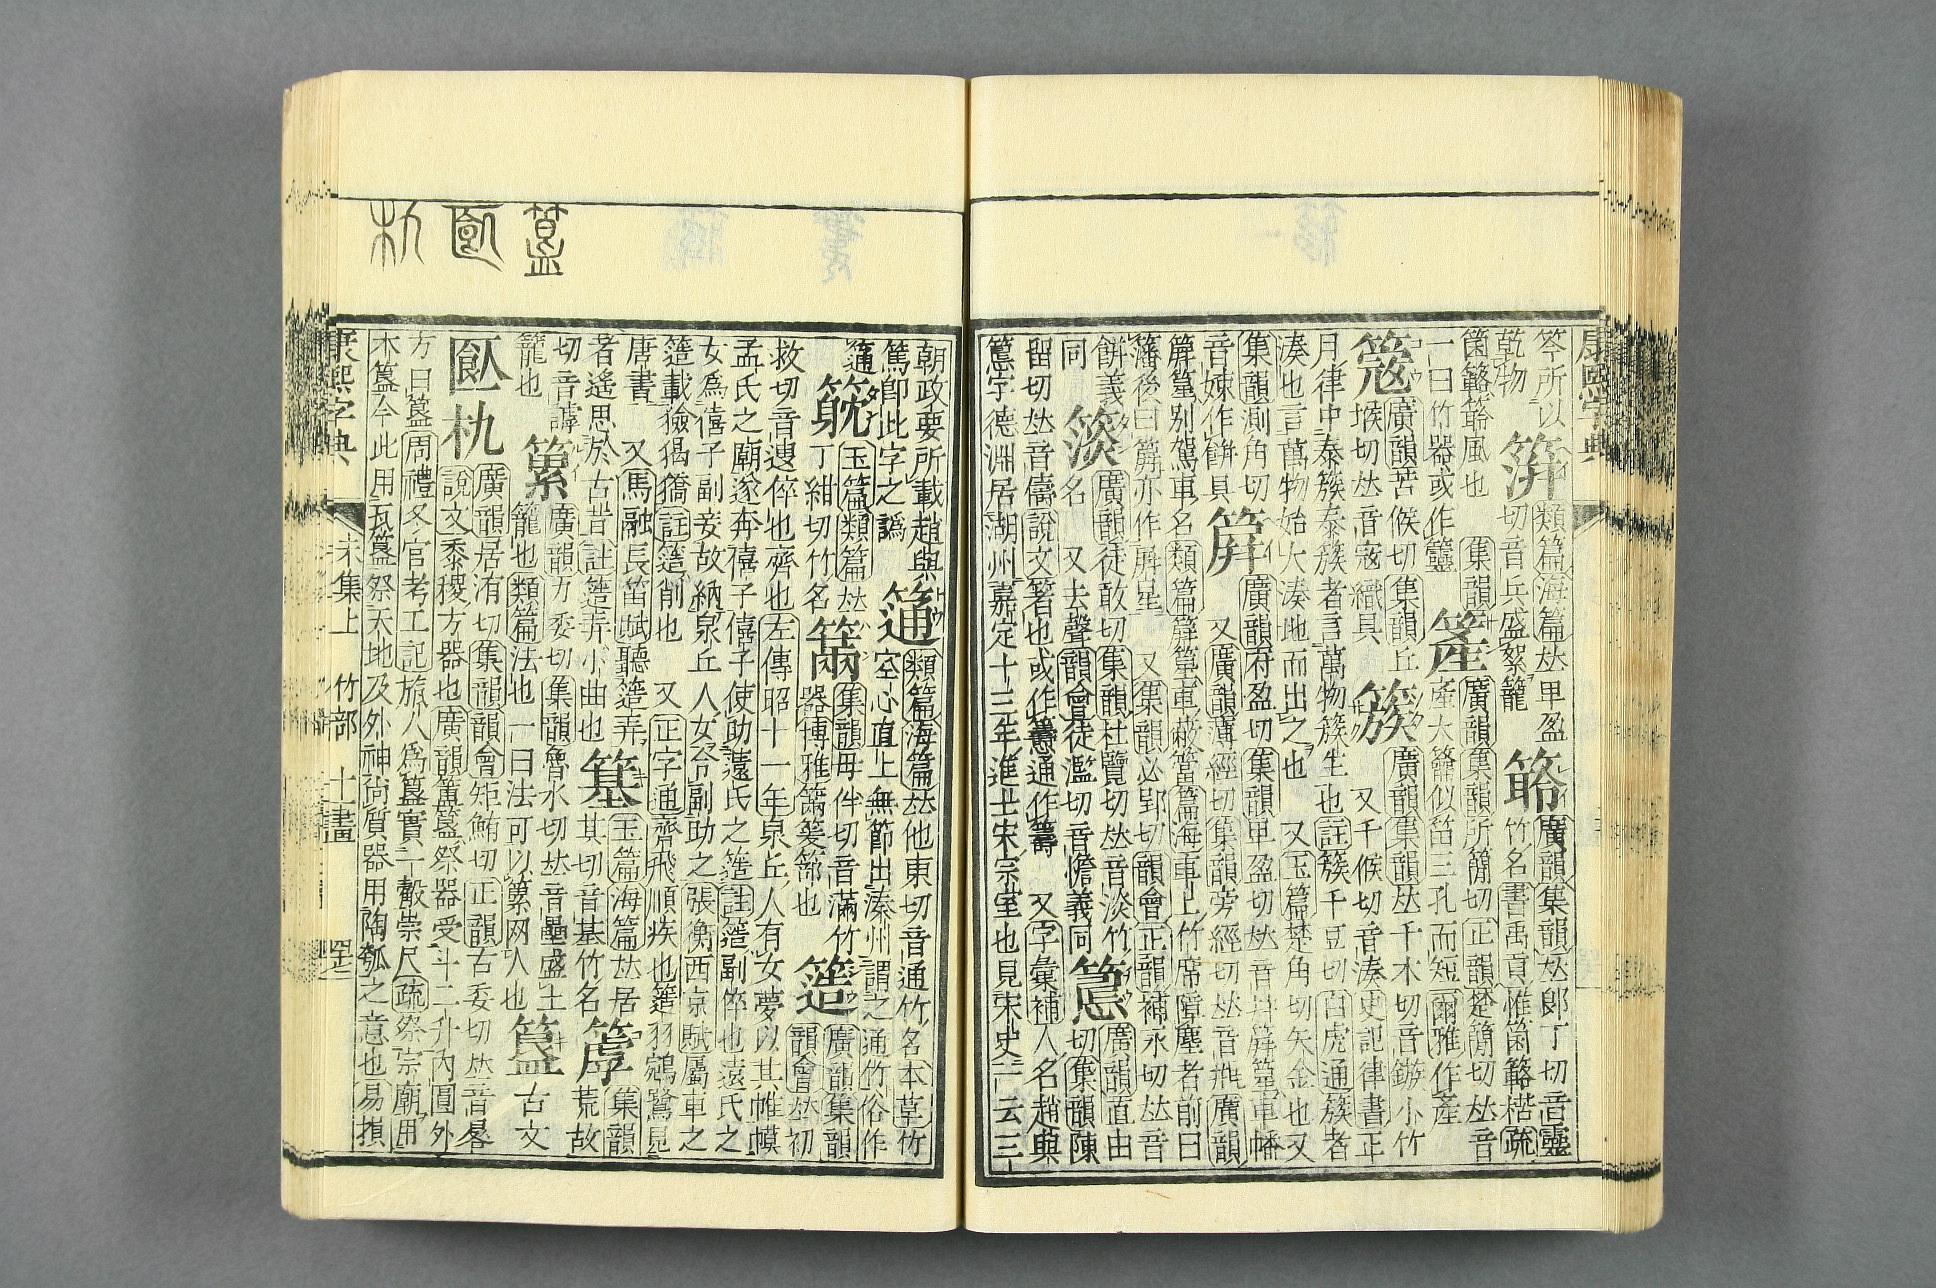 康熙字典
笭所以
乾物
類篇海篇𠀤甲盈
切音兵盛絮籠
廣韻集韻𠀤郎丁切音靈
竹名書禹貢惟箘簵楛疏
箘簵簵風也
集韻
一曰竹器或作籯
簅
廣韻集韻所簡切正韻楚簡切𠀤音
產大籥似笛三孔而短爾雅作產
簆
廣韻苦候切集韻丘
堠切𠀤音寇織具
簇
廣韻集韻𠀤千木切音鏃小竹
又千候切音湊史記律書正
月律中泰簇泰簇者言萬物簇生也註簇千豆切白虎通簇者
湊也言萬物始大湊地而出之也 又玉篇楚角切矢金也又
集韻測角切
音娕作餅具
簈
廣韻府盈切集韻卑盈切𠀤音幷簈篂車幡
又廣韻薄經切集韻旁經切𠀤音瓶廣韻
簈篂別駕車名類篇簈篂車蔽簹篇海車上竹席障塵者前曰
藩後曰簈亦作屏星 又集韻必郢切韻會正韻補永切𠀤音
餠義
同
廣韻徒敢切集韻杜覽切𠀤音淡竹
名 又去聲韻會徒濫切音憺義同
廣韻直由
切集韻陳
留切𠀤音儔說文箸也或作籌通作籌 又字彙補人名趙與
字德淵居湖州嘉定十三年進士宋宗室也見宋史一云三
朝政要所載趙與
篤卽此字之譌
類篇海篇𠀤他東切音通竹名本草竹
空心直上無節出溱州謂之通竹俗作
玉篇類篇𠀤
丁紺切竹名
集韻母伴切音滿竹
器博雅
篰也
簉
廣韻集韻
韻會𠀤初
救切音遚倅也齊也左傳昭十一年泉丘人有女夢以其帷幕
孟氏之廟遂奔僖子僖子使助薳氏之簉註簉副倅也薳氏之
女爲僖子副妾故納泉丘人女令副助之張衡西京賦屬車之
簉載獫猲獢註簉副也 又正字通齊飛順疾也簉羽鵷鷺見
唐書 又馬融長笛賦聽簉弄
者遙思於古昔註簉弄小曲也
簊
玉篇海篇𠀤居
其切音基竹名
集韻
荒故
切音謼
籠也
廣韻力委切集韻魯水切𠀤音壘盛土
籠也類篇法也一曰法可以网人也
簋
古文
朹
廣韻居洧切集韻韻會矩鮪切正韻古委切𠀤音晷
說文黍稷方器也廣韻簠簋祭器受斗二升內圓外
方曰簋周禮冬官考工記旊人爲簋實一觳崇尺疏祭宗廟用
木簋今此用瓦簋祭天地及外神尙質器用陶瓠之意也易損
康熙字典
未集上 竹部 十一畫